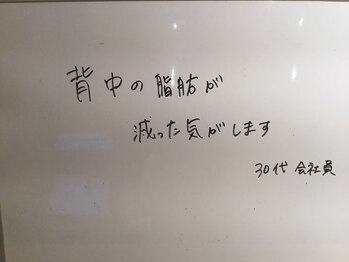 背中の脂肪が
減った気がします
30代 会社員